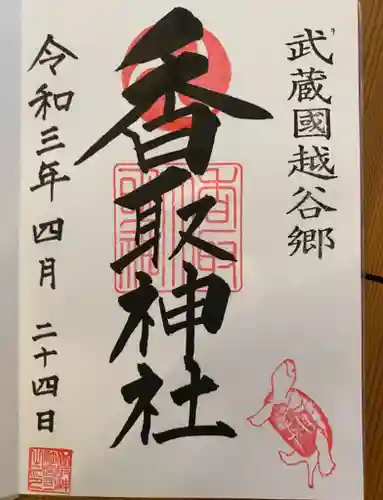 武蔵國越谷郷
香取神社
令和三年四月二十四日